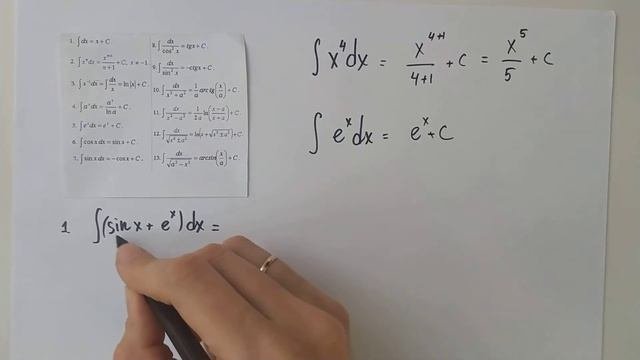 1. ∫dx = x + C.
2. ∫xⁿdx = xⁿ⁺¹/(n+1) + C, n ≠ -1.
3. ∫x⁻¹dx = ∫dx/x = ln|x| + C.
4. ∫aˣdx = aˣ/ln a + C.
5. ∫eˣdx = eˣ + C.
6. ∫cos x dx = sin x + C.
7. ∫sin x dx = -cos x + C.
8. ∫dx/cos² x = tgx + C.
9. ∫dx/sin² x = -ctgx + C.
10. ∫dx/(x² + a²) = 1/a arctg(x/a) + C.
11. ∫dx/(x² - a²) = 1/2a ln|(x - a)/(x + a)| + C.
12. ∫dx/√(x² ± a²) = ln|x + √(x² ± a²)| + C.
13. ∫dx/√(a² - x²) = arcsin(x/a) + C.
∫x⁴dx = x⁴⁺¹/(4+1) + C = x⁵/5 + C
∫eˣdx = eˣ + C
1 ∫(sin x + eˣ)dx =